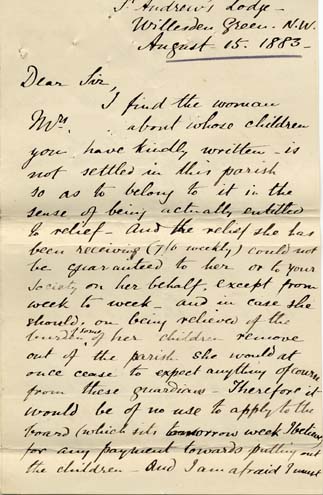 St Andrew's Lodge -
Willesden Green. N.W.
August 15. 1883 -
Dear Sir,
I find the woman
Mrs. . . about whose children
you have kindly written - is
not settled in this parish
so as to belong to it in the
sense of being actually entitled
to relief - And the relief she has
been receiving (7/6 weekly) could not
be guaranteed to her or to your
Society on her behalf, except from
week to week - and in case she
should, on being relieved of the
burden of some of her children remove
out of the parish she would at
once cease to expect anything of course
from these guardians - Therefore it
would be of no use to apply to the
board (which sits tomorrow week I believe)
for any payment towards putting out
the children - And I am afraid I must